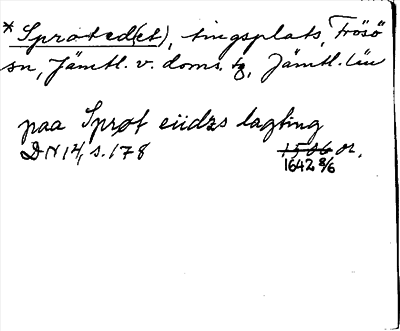 * Sproted(et), tingsplats, Frösö
sn, Jämtl. v. doms. tg, Jämtl. län
paa Sprøt eiidzs lagting
DN 14, s. 178 1506 or.
1642 8/6